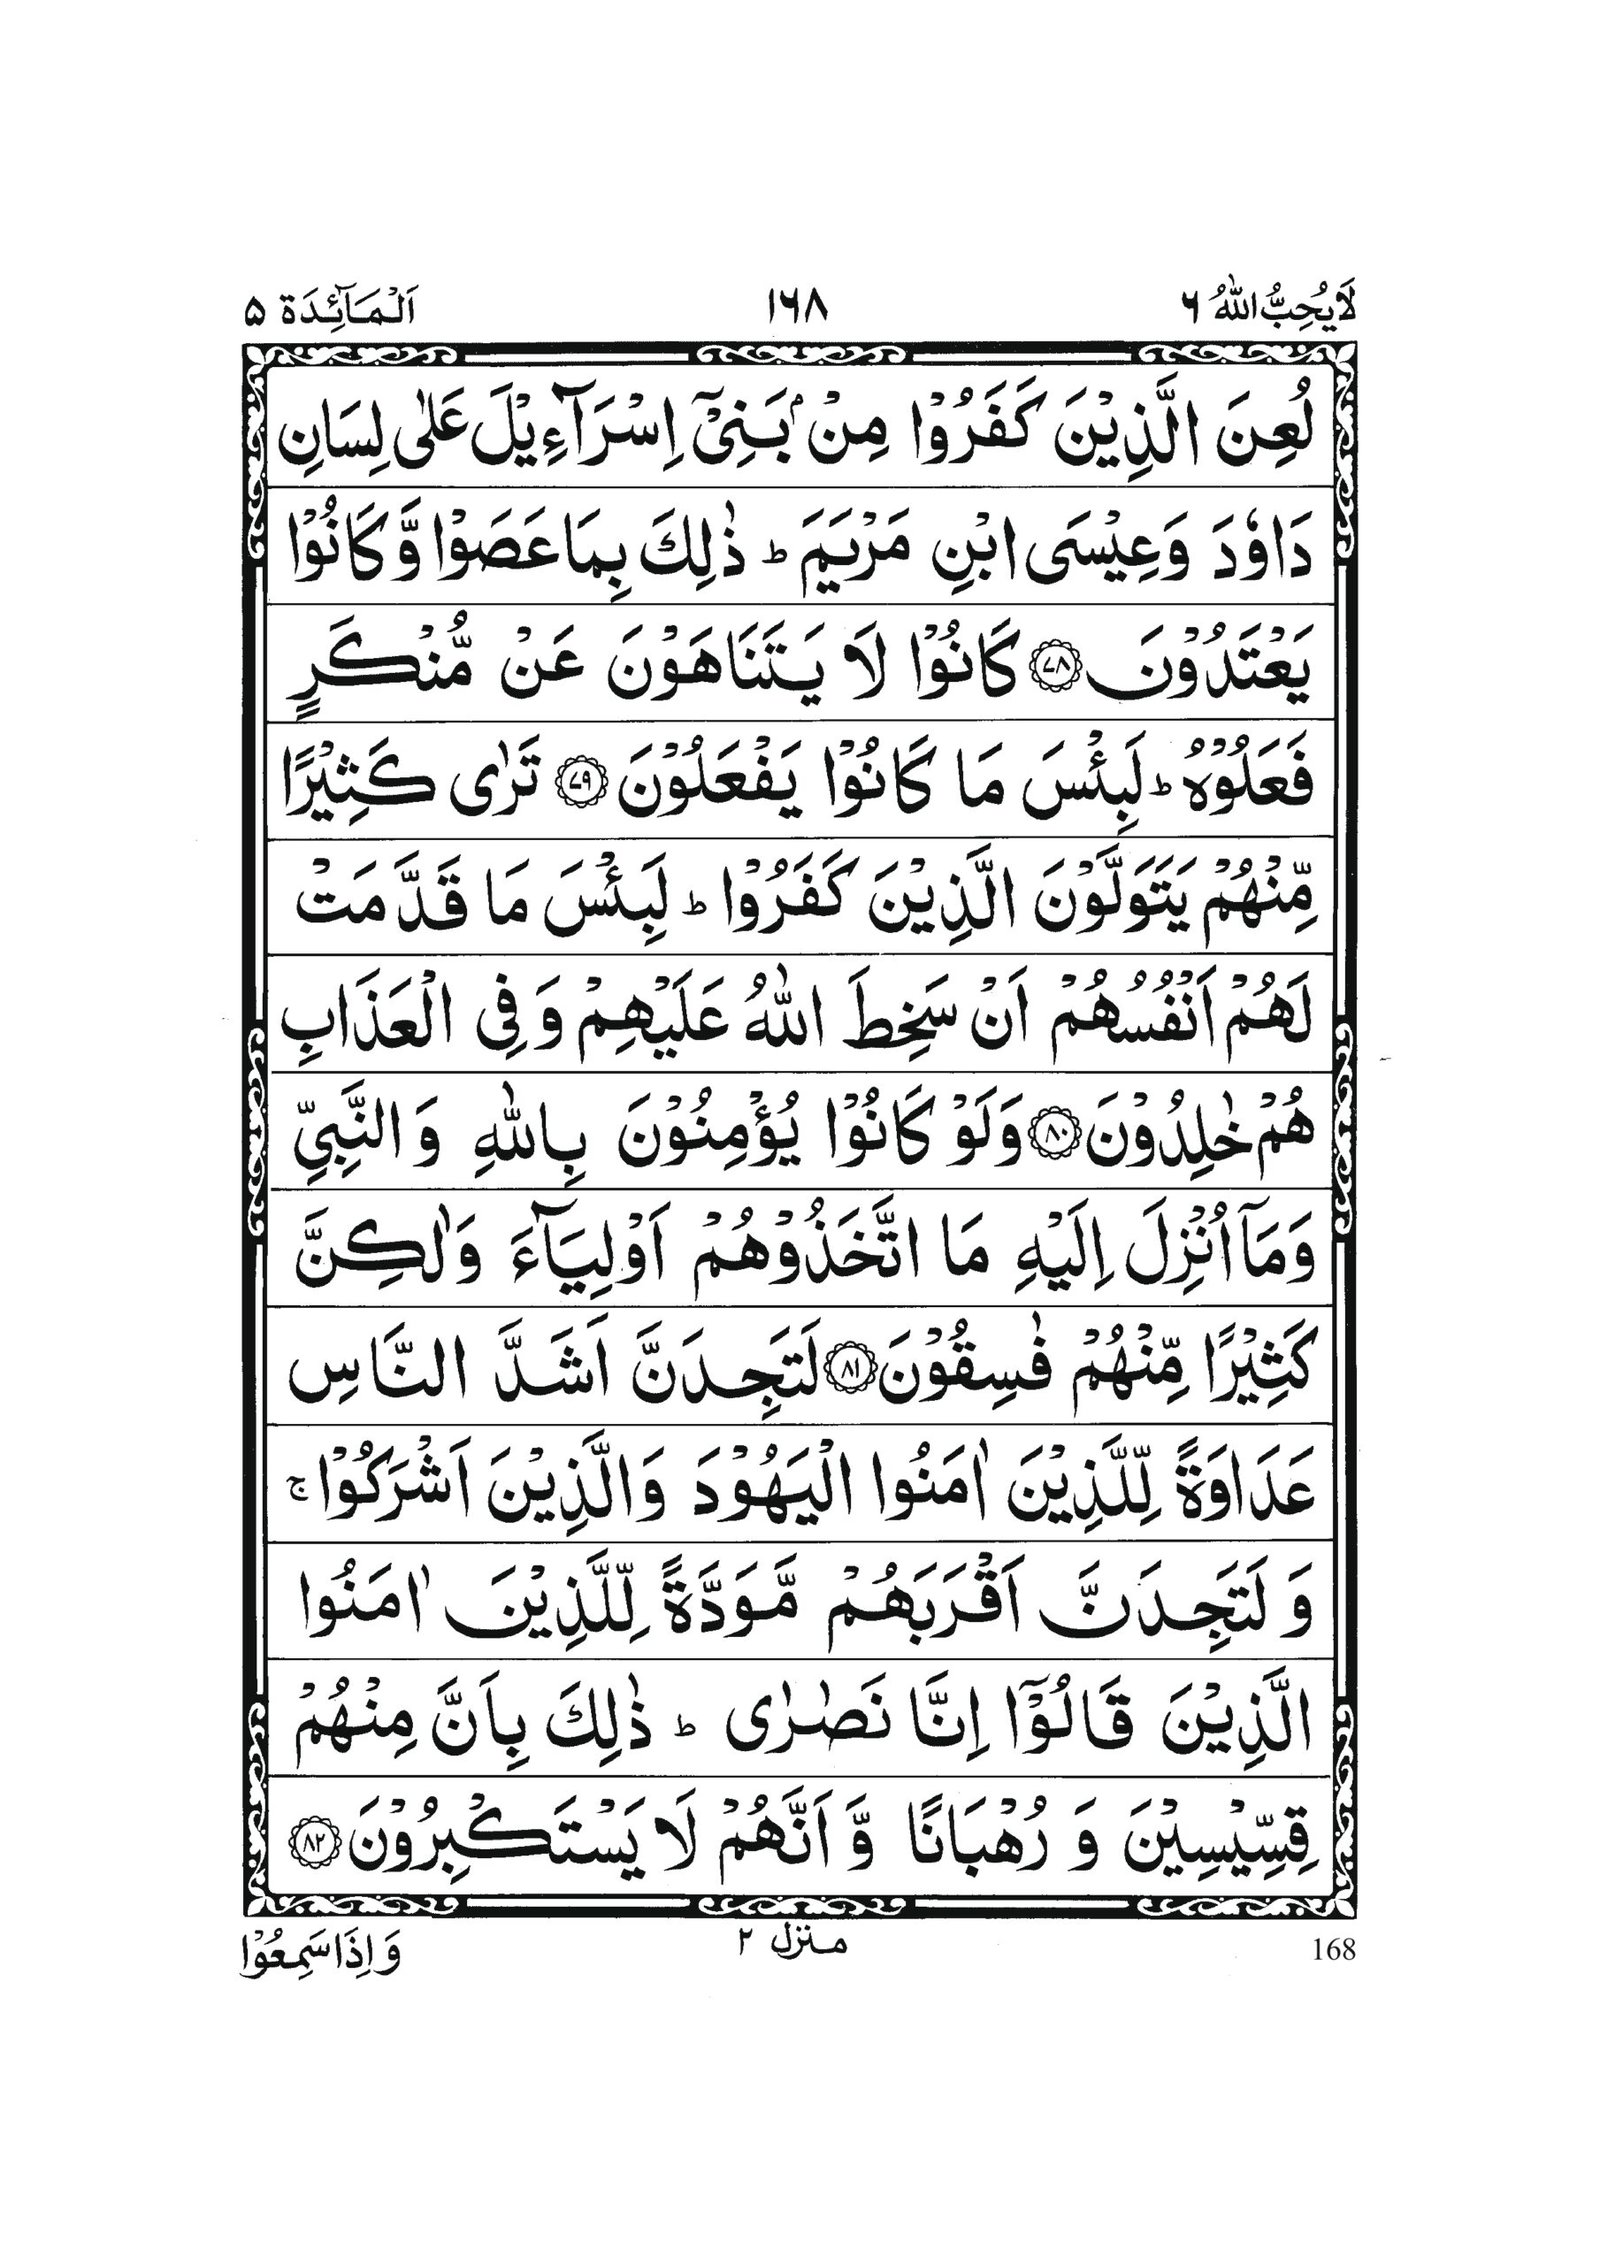 لَا يُحِبُّ اللّٰهُ ٦
١٦٨
اَلْمَآئِدَة ٥
لُعِنَ الَّذِيْنَ كَفَرُوْا مِنْۢ بَنِيْۤ اِسْرَآءِيْلَ عَلٰى لِسَانِ
دَاوٗدَ وَعِيْسَى ابْنِ مَرْيَمَ ؕ ذٰلِكَ بِمَا عَصَوْا وَّكَانُوْا
يَعْتَدُوْنَ ۝٧٨ كَانُوْا لَا يَتَنَاهَوْنَ عَنْ مُّنْكَرٍ
فَعَلُوْهُ ؕ لَبِئْسَ مَا كَانُوْا يَفْعَلُوْنَ ۝٧٩ تَرٰى كَثِيْرًا
مِّنْهُمْ يَتَوَلَّوْنَ الَّذِيْنَ كَفَرُوْا ؕ لَبِئْسَ مَا قَدَّمَتْ
لَهُمْ اَنْفُسُهُمْ اَنْ سَخِطَ اللّٰهُ عَلَيْهِمْ وَفِي الْعَذَابِ
هُمْ خٰلِدُوْنَ ۝٨٠ وَلَوْ كَانُوْا يُؤْمِنُوْنَ بِاللّٰهِ وَالنَّبِيِّ
وَمَاۤ اُنْزِلَ اِلَيْهِ مَا اتَّخَذُوْهُمْ اَوْلِيَآءَ وَلٰكِنَّ
كَثِيْرًا مِّنْهُمْ فٰسِقُوْنَ ۝٨١ لَتَجِدَنَّ اَشَدَّ النَّاسِ
عَدَاوَةً لِّلَّذِيْنَ اٰمَنُوا الْيَهُوْدَ وَالَّذِيْنَ اَشْرَكُوْا ۚ
وَلَتَجِدَنَّ اَقْرَبَهُمْ مَّوَدَّةً لِّلَّذِيْنَ اٰمَنُوا
الَّذِيْنَ قَالُوْۤا اِنَّا نَصٰرٰى ؕ ذٰلِكَ بِاَنَّ مِنْهُمْ
قِسِّيْسِيْنَ وَرُهْبَانًا وَّاَنَّهُمْ لَا يَسْتَكْبِرُوْنَ ۝٨٢
168
منزل ٢
وَاِذَا سَمِعُوْا